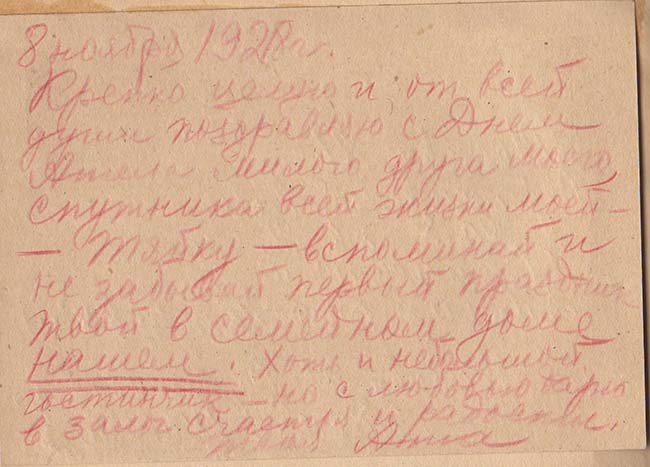 8 ноября 1928 г.
Крепко целую и от всей
души поздравляю с Днем
Ангела милого друга моего,
спутника всей жизни моей –
– – вспоминай и
не забывай первый праздник
твой в семейном доме
нашем. Хоть и небольшой
гостинчик – но с любовью дарю
в залог счастья и радости.
твоя